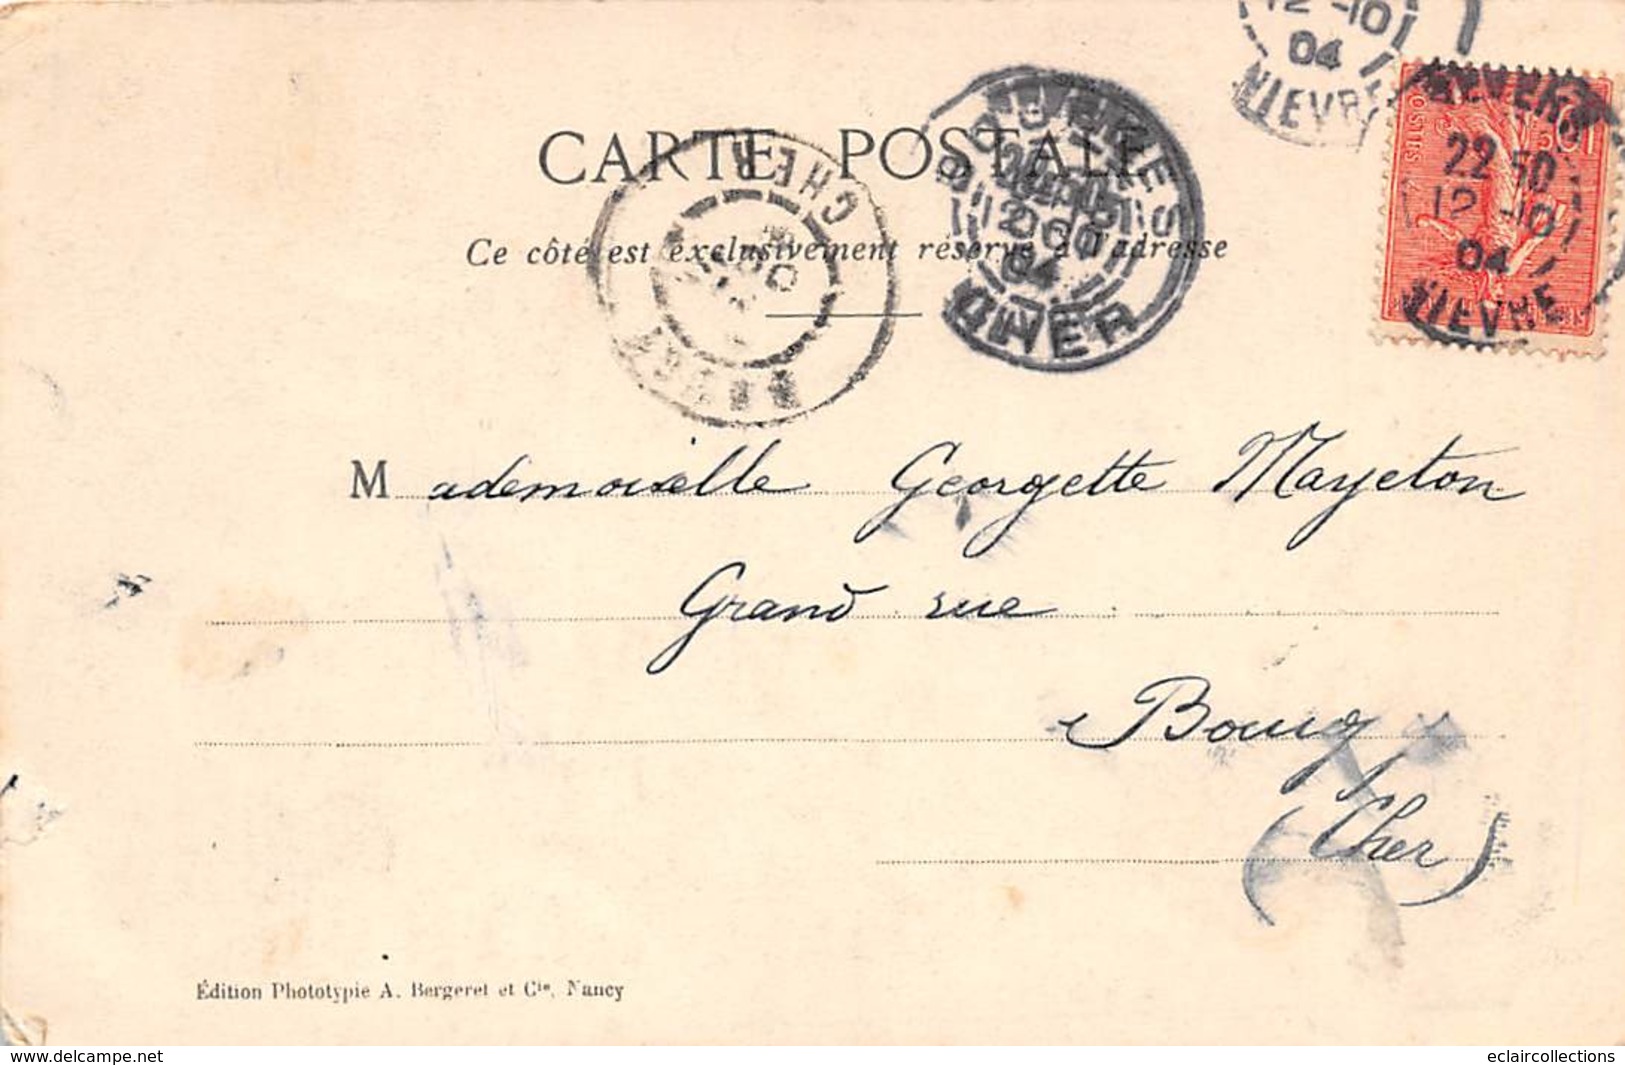 12 -10
04
NIEVRE
NEVERS
22 50
12 -10
04
NIEVRE
POSTES
CARTE POSTALE
CHER
BOURGES
12
04
CHER
Ce côté est exclusivement réservé à l'adresse
Mademoiselle Georgette Mayeton
Grand rue
Bourg
(Cher)
Édition Phototypie A. Bergeret et Cie, Nancy
www.delcampe.net
eclaircollections